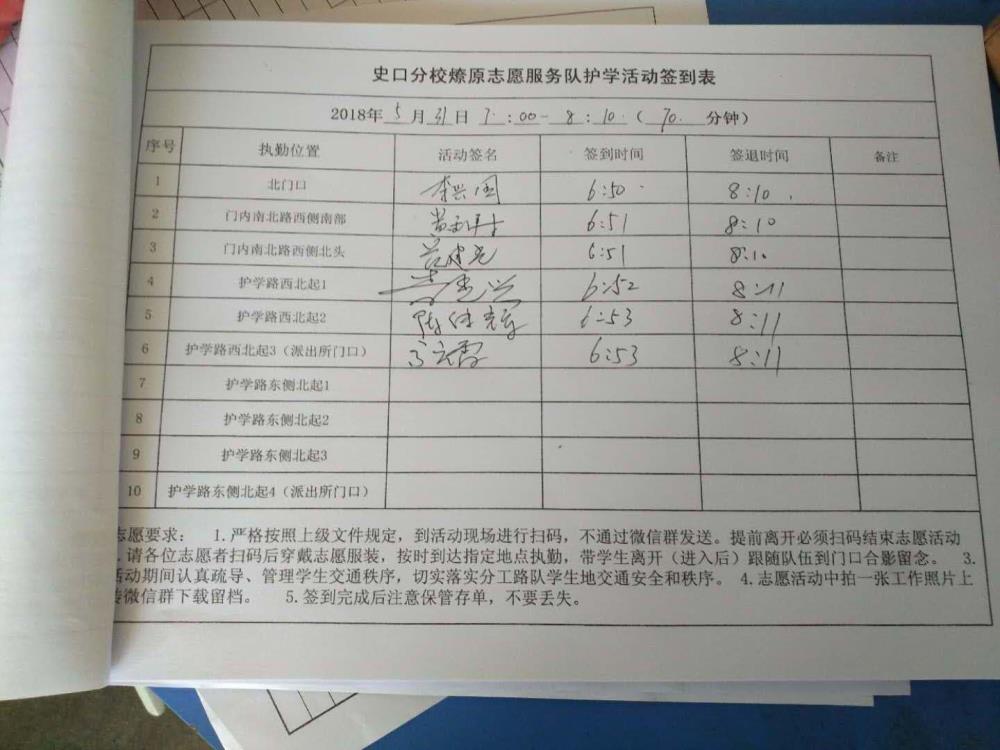 史口分校燎原志愿服务队护学活动签到表
2018年 5 月 31 日 7:00- 8:10（ 70. 分钟）
序号 执勤位置 活动签名 签到时间 签退时间 备注
1 北门口 李兴国 6:50 8:10
2 门内南北路西侧南部 6:51 8:10
3 门内南北路西侧北头 6:51 8:10
4 护学路西北起1 6:52 8:11
5 护学路西北起2 6:53 8:11
6 护学路西北起3（派出所门口） 6:53 8:11
7 护学路东侧北起1
8 护学路东侧北起2
9 护学路东侧北起3
10 护学路东侧北起4（派出所门口）
志愿要求： 1.严格按照上级文件规定，到活动现场进行扫码，不通过微信群发送。提前离开必须扫码结束志愿活动
.请各位志愿者扫码后穿戴志愿服装，按时到达指定地点执勤，带学生离开（进入后）跟随队伍到门口合影留念。 3.
活动期间认真疏导、管理学生交通秩序，切实落实分工路队学生地交通安全和秩序。 4.志愿活动中拍一张工作照片上
传微信群下载留档。 5.签到完成后注意保管存单，不要丢失。